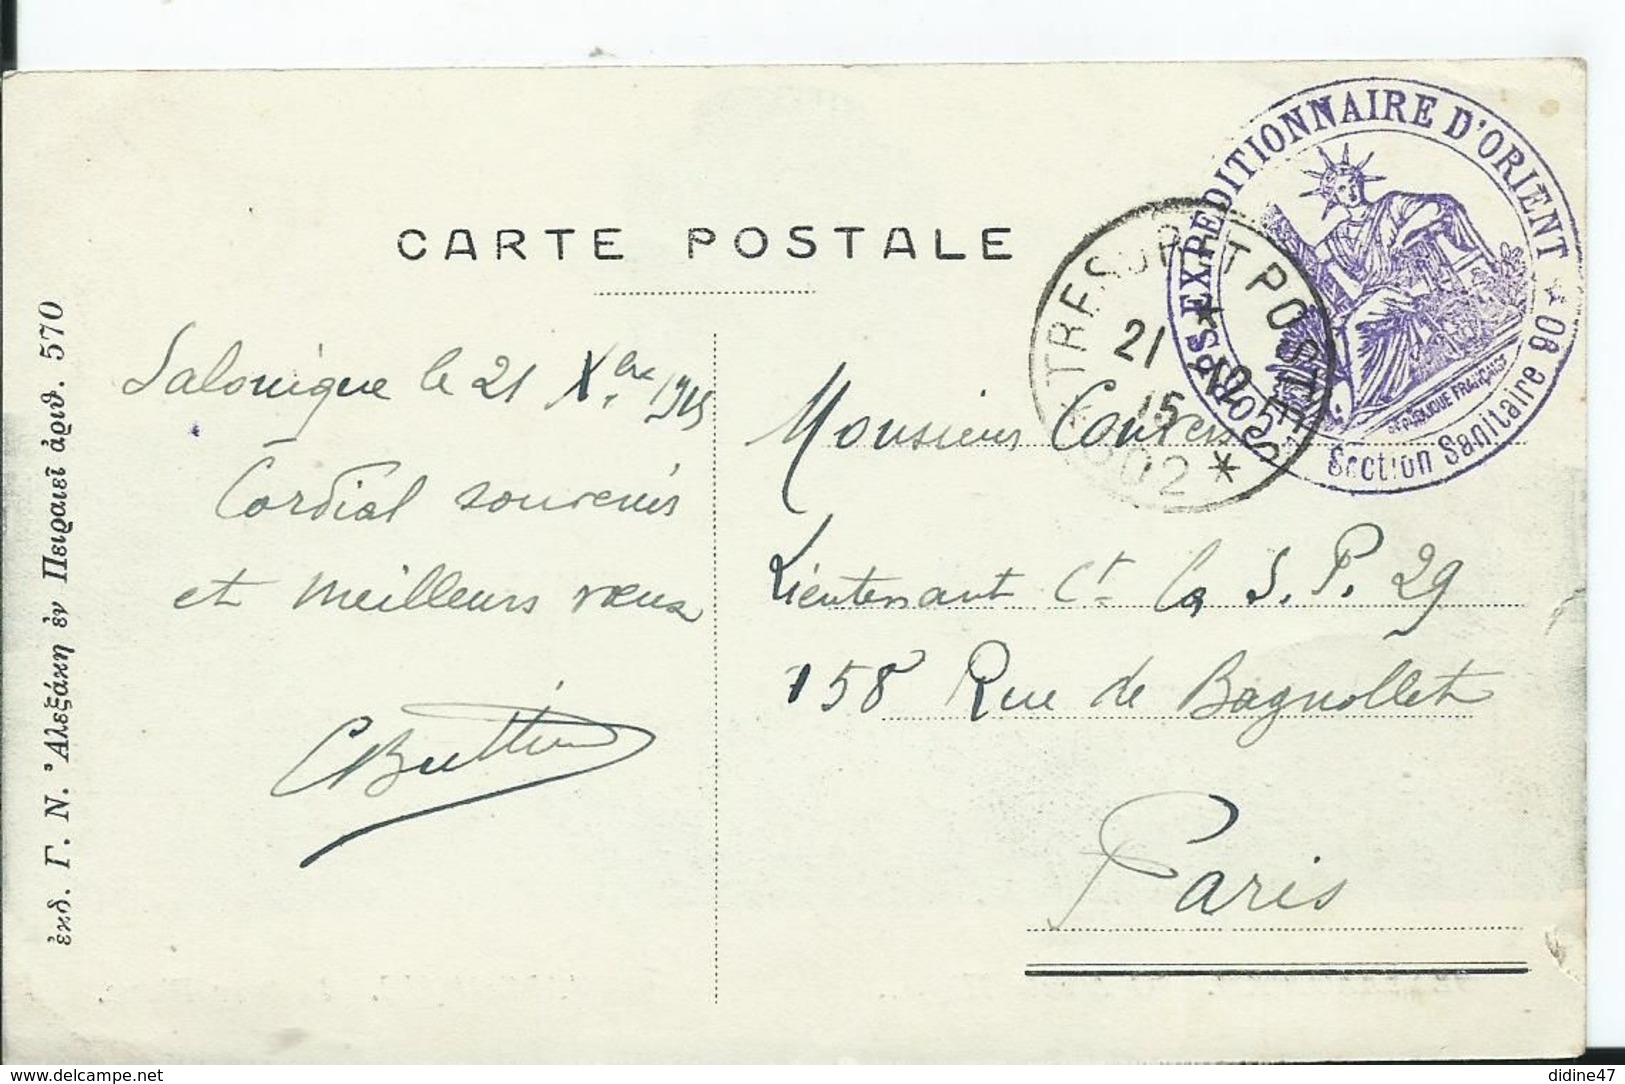 CARTE POSTALE
CORPS EXPEDITIONNAIRE D'ORIENT
Section Sanitaire 08
REPUBLIQUE FRANÇAISE
TRESOR ET POSTES
21 12
15
* 502 *
Salonique le 21 Xbre 1915
Cordial souvenir
et meilleurs vœux
Monsieur
Lieutenant Ct la S. P. 29
158 Rue de Bagnollet
Paris
ἐκδ. Γ. Ν. Ἀλεξάκη ἐν Πειραιεῖ ἀριθ. 570
delcampe.net
didine47